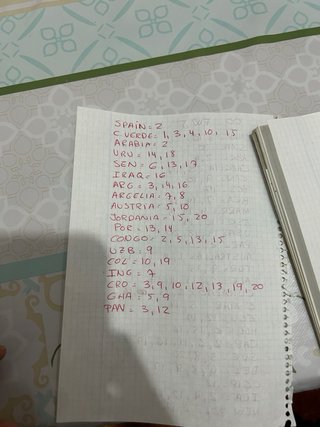 SPAIN = 2
C.VERDE = 1, 3, 4, 10, 15
ARABIA = 2
URU = 14, 18
SEN = 6, 13, 17
IRAQ = 16
ARG = 3, 14, 16
ARGELIA = 7, 8
AUSTRIA = 5, 10
JORDANIA = 15, 20
POR = 13, 14
CONGO = 2, 5, 13, 15
UZB = 9
COL = 10, 19
ING = 7
CRO = 3, 9, 10, 12, 13, 19, 20
GHA = 5, 9
PAN = 3, 12